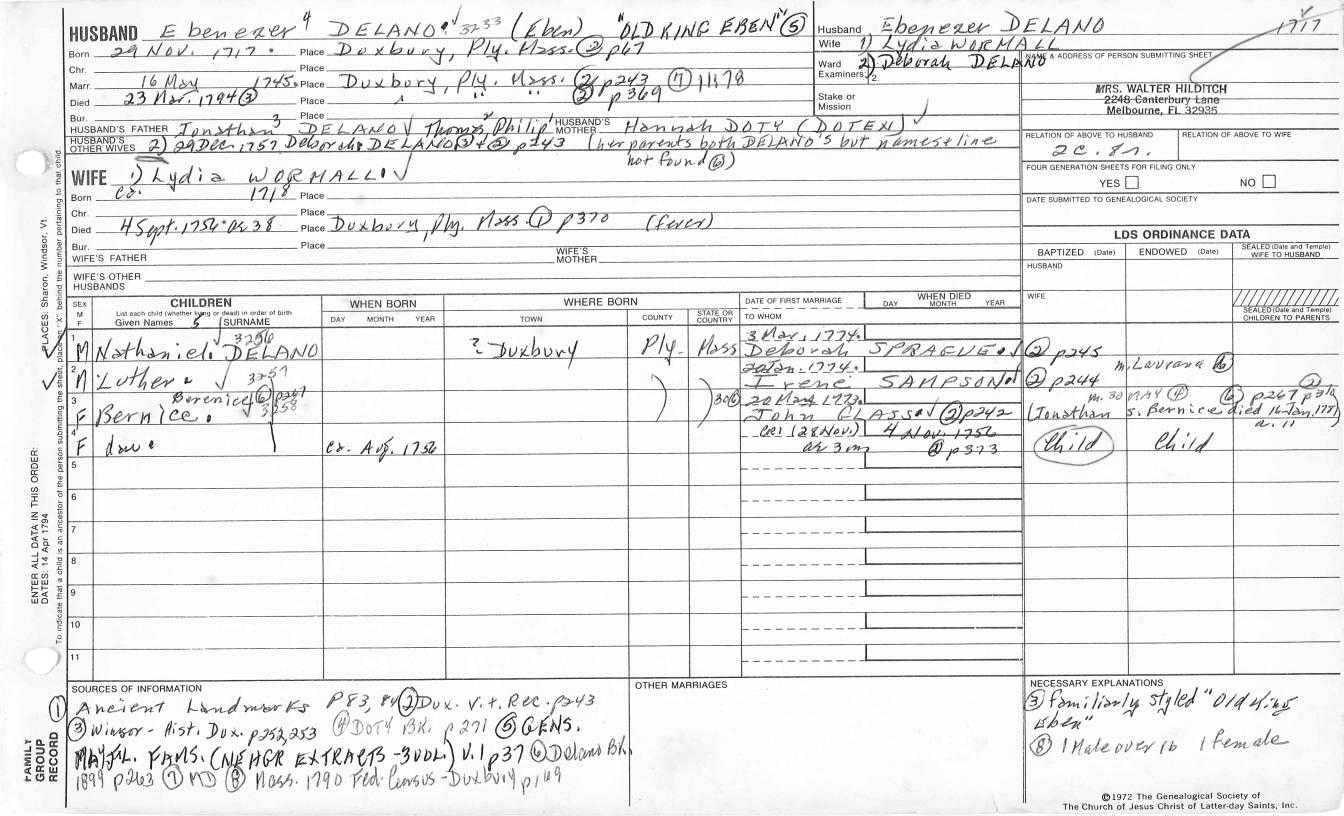 HUSBAND Ebenezer 4 DELANO. ✓ 3233 (Eben) "OLD KING EBEN" (5)
Born 29 Nov. 1717. Place Duxbury, Ply. Mass. (2) p67
Chr. Place
Marr. 16 May 1745. Place Duxbury, Ply. Mass. (2) p243 (7) 11:178
Died 23 Mar. 1794 (3) Place " " (2) p369
Bur. Place
HUSBAND'S FATHER Jonathan 3 DELANO ✓ Thomas 2 Philip 1 HUSBAND'S MOTHER Hannah DOTY (DOTEN) ✓
HUSBAND'S OTHER WIVES 2) 29 Dec. 1757 Deborah DELANO p243 (her parents both DELANO'S but names + line
not found (6))
Husband Ebenezer DELANO 1717
Wife 1) Lydia WORMALL
Ward 2) Deborah DELANO
Examiners: 1 2
Stake or Mission
NAME & ADDRESS OF PERSON SUBMITTING SHEET
MRS. WALTER HILDITCH
2248 Canterbury Lane
Melbourne, FL 32935
RELATION OF ABOVE TO HUSBAND RELATION OF ABOVE TO WIFE
2c. 8r.
FOUR GENERATION SHEETS FOR FILING ONLY
YES NO
DATE SUBMITTED TO GENEALOGICAL SOCIETY
WIFE 1) Lydia WORMALL. ✓
Born ca. 1718 Place
Chr. Place
Died 4 Sept. 1756. ae 38 Place Duxbury, Ply. Mass. (1) p370 (fever)
Bur. Place
WIFE'S FATHER WIFE'S MOTHER
WIFE'S OTHER HUSBANDS
LDS ORDINANCE DATA
BAPTIZED (Date) ENDOWED (Date) SEALED (Date and Temple) WIFE TO HUSBAND
HUSBAND
WIFE
SEALED (Date and Temple) CHILDREN TO PARENTS
SEX M F CHILDREN List each child (whether living or dead) in order of birth Given Names 5 SURNAME
WHEN BORN DAY MONTH YEAR
WHERE BORN TOWN COUNTY STATE OR COUNTRY
DATE OF FIRST MARRIAGE TO WHOM
WHEN DIED DAY MONTH YEAR
1 M Nathaniel. ✓ 3256 DELANO ? Duxbury Ply. Mass 3 Mar. 1774. Deborah SPRAGUE. ✓ (2) p245
2 M Luther. ✓ 3257 20 Jan. 1774. Irene SAMPSON. (2) p244 m. Laurana (6)
3 F Bernice. Berenice (6) p267 ✓ 3258 30 (6) 20 May 1773. John GLASS ✓ (2) p242 m. 30 MAY (4) (6) p267 (2) p370
(Jonathan s. Bernice died 16 Jan, a. 11
4 F dau. ca. Aug. 1756 CR1 (28 Nov.) ae 3 m 4 Nov. 1756 (2) p373 Child Child
5
6
7
8
9
10
11
PLACES: Sharon, Windsor, Vt.
ENTER ALL DATA IN THIS ORDER:
DATES: 14 Apr 1794
To indicate that a child is an ancestor of the person submitting the sheet, place an "X" behind the number pertaining to that child.
FAMILY GROUP RECORD
SOURCES OF INFORMATION
(1) Ancient Landmarks P83, 84 (2) Dux. V.t. Rec. p243
(3) Winsor - Hist. Dux. p252, 253 (4) DOTY Bk. p. 271 (5) GENS.
MAYFL. FAMS. (NEHGR EXTRACTS - 3 VOL.) V.1 p37 (6) Delano Bk.
1899 p263 (7) MD (8) Mass. 1790 Fed. Census - Duxbury p169
OTHER MARRIAGES
NECESSARY EXPLANATIONS
(3) familiarly styled "Old King
Eben"
(8) 1 Male over 16 1 female
©1972 The Genealogical Society of
The Church of Jesus Christ of Latter-day Saints, Inc.